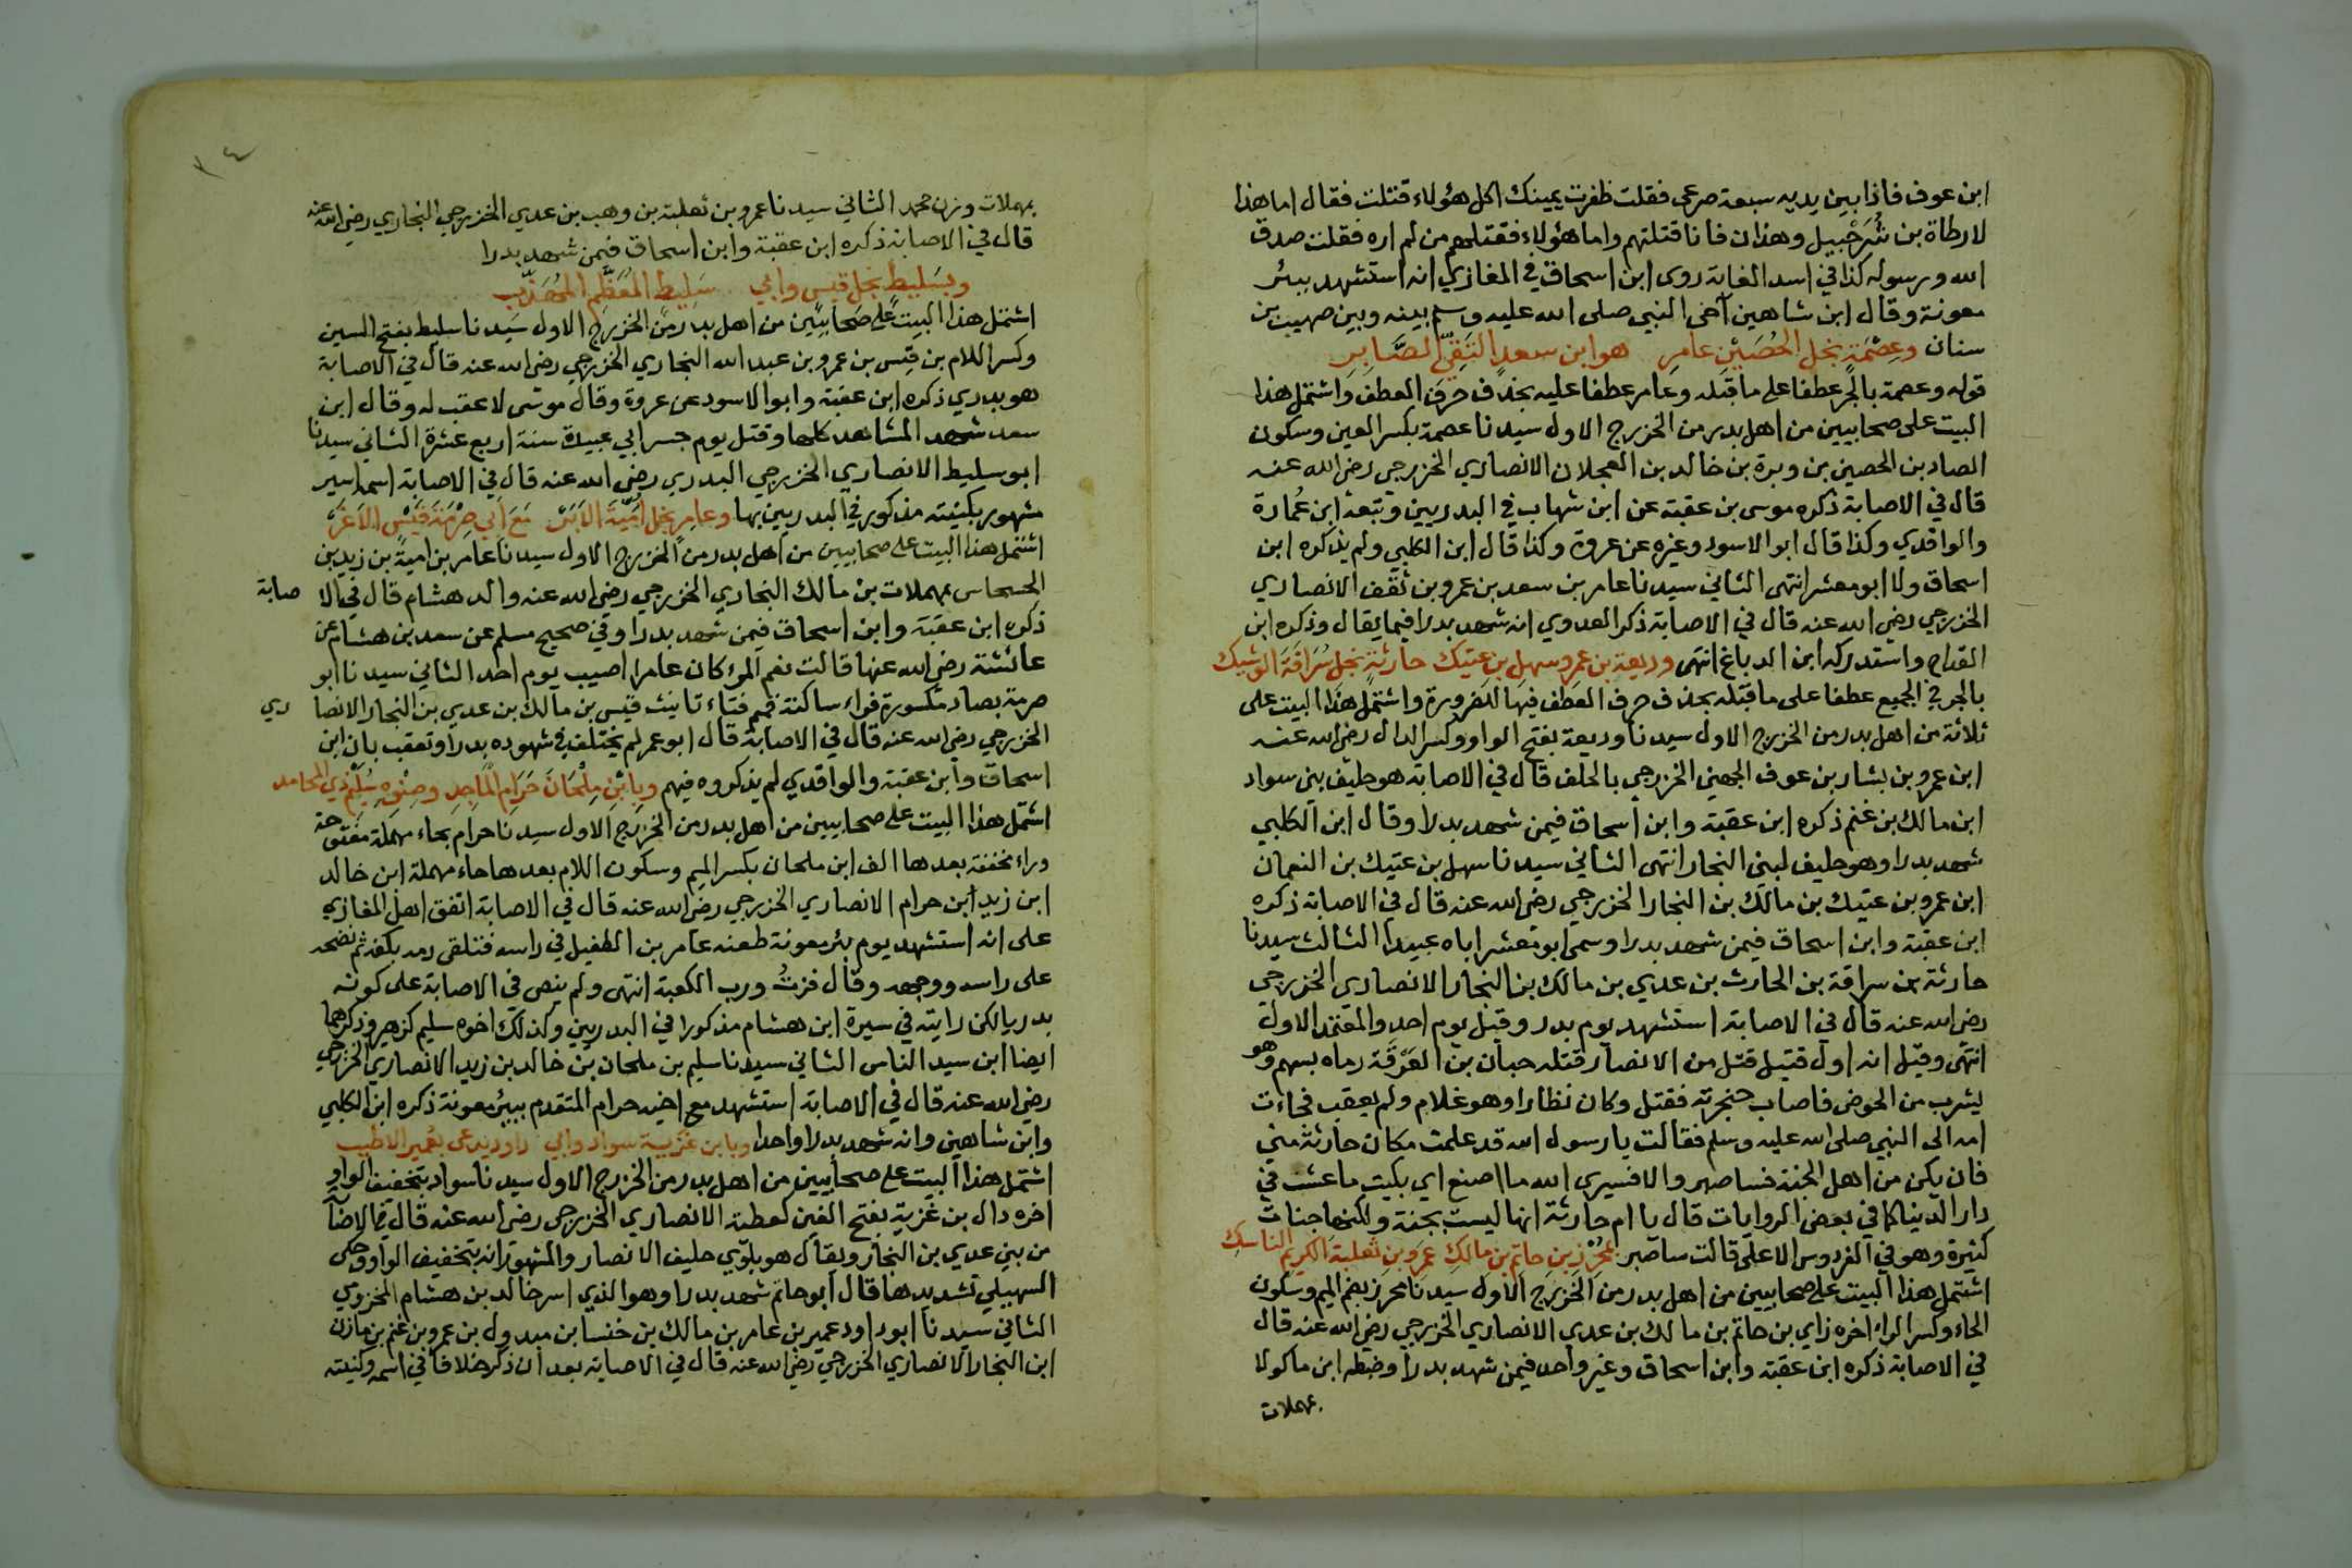 ابن عوف فاذا بين يديه سبعة صرعى فقلت ظفرت يمينك اكل هؤلاء قتلت فقال اما هذا
لارطاة بن شُرَحْبيل وهذان فانا قتلتهم واما هؤلاء فقتلهم من لم اره فقلت صدق
الله ورسوله كذا في اسد الغابة روى ابن اسحاق في المغازي انه استشهد ببئر
معونة وقال ابن شاهين آخى النبي صلى الله عليه وسلم بينه وبين صهيب بن
سنان وعِصْمَةٍ نجل الحُصَيْنِ عامرِ هو ابن سعدٍ التَقِيّ الصَّابِرِ
قوله وعصمة بالجر عطفا على ما قبله وعامر عطفا عليه بحذف حرف العطف واشتمل هذا
البيت على صحابيين من اهل بدر من الخزرج الاول سيدنا عصمة بكسر العين وسكون
الصاد بن الحصين بن وبرة بن خالد بن العجلان الانصاري الخزرجي رضي الله عنه
قال في الاصابة ذكره موسى بن عقبة عن ابن شهاب في البدريين وتبعه ابن عُمارة
والواقدي وكذا قال ابو الاسود وغيره عن عروة وكذا قال ابن الكلبي ولم يذكره ابن
اسحاق ولا ابو معشر انتهى الثاني سيدنا عامر بن سعد بن عمرو بن ثقف الانصاري
الخزرجي رضي الله عنه قال في الاصابة ذكر العدوي انه شهد بدرا فيما يقال وذكره ابن
القداح واستدركه ابن الدباغ انتهى وديعة بن عمرٍو سهلِ بنِ عتيك حارثةٍ نجلِ سُرَاقَةَ الوشيك
بالجر في الجميع عطفا على ما قبله بحذف حرف العطف فيها للضرورة واشتمل هذا البيت على
ثلاثة من اهل بدر من الخزرج الاول سيدنا وديعة بفتح الواو وكسر الدال رضي الله عنه
ابن عمرو بن بشار بن عوف الجهني الخزرجي بالحلف قال في الاصابة هو حليف بني سواد
ابن مالك بن غنم ذكره ابن عقبة وابن اسحاق فيمن شهد بدرا وقال ابن الكلبي
شهد بدرا وهو حليف لبني النجار انتهى الثاني سيدنا سهل بن عتيك بن النعمان
ابن عمرو بن عتيك بن مالك بن النجار الخزرجي رضي الله عنه قال في الاصابة ذكره
ابن عقبة وابن اسحاق فيمن شهد بدرا وسمى ابو معشر اباه عبيدا الثالث سيدنا
حارثة بن سراقة بن الحارث بن عدي بن مالك بن النجار الانصاري الخزرجي
رضي الله عنه قال في الاصابة استشهد يوم بدر وقيل يوم احد والمعتمد الاول
انتهى وقيل انه اول قتيل قتل من الانصار قتله حبان بن العَرِقَة رماه بسهم وهو
يشرب من الحوض فاصاب حنجرته فقتل وكان نظارا وهو غلام ولم يعقب فجاءت
امه الى النبي صلى الله عليه وسلم فقالت يا رسول الله قد علمت مكان حارثة مني
فان يكن من اهل الجنة فساصبر والا فسيرى الله ما اصنع اي بكيت ما عشت في
دار الدنيا كما في بعض الروايات قال يا ام حارثة انها ليست بجنة ولكنها جنات
كثيرة وهو في الفردوس الاعلى قالت ساصبر بمُحْرِزِ بنِ حاتمِ بنِ مالكِ عمرِو بنِ ثعلبةَ الكريمِ الناسكِ
اشتمل هذا البيت على صحابيين من اهل بدر من الخزرج الاول سيدنا محرز بضم الميم وسكون
الحاء وكسر الراء اخره زاي بن حاتم بن مالك بن عدي الانصاري الخزرجي رضي الله عنه قال
في الاصابة ذكره ابن عقبة وابن اسحاق وغير واحد فيمن شهد بدرا وضبطه ابن ماكولا
بمهملات
١٤
بمهملات وزن محمد الثاني سيدنا عمرو بن ثعلبة بن وهب بن عدي الخزرجي النجاري رضي الله عنه
قال في الاصابة ذكره ابن عقبة وابن اسحاق فيمن شهد بدرا
وبسَليطٍ نجل قيسٍ وابي سَلِيط المُعَظَّم المُهَذَّب
اشتمل هذا البيت على صحابيين من اهل بدر من الخزرج الاول سيدنا سليط بفتح السين
وكسر اللام بن قيس بن عمرو بن عبد الله النجاري الخزرجي رضي الله عنه قال في الاصابة
هو بدري ذكره ابن عقبة وابو الاسود عن عروة وقال موسى لا عقب له وقال ابن
سعد شهد المشاهد كلها وقتل يوم جسر ابي عبيدة سنة اربع عشرة الثاني سيدنا
ابو سليط الانصاري الخزرجي البدري رضي الله عنه قال في الاصابة اسمه اسير
مشهور بكنيته مذكور في البدريين بها وعامرٍ نجلِ اُمَيَّةَ الاَبَرّ مَعَ ابي صِرْمَةَ قَيْسِ الاَغَرّ
اشتمل هذا البيت على صحابيين من اهل بدر من الخزرج الاول سيدنا عامر بن امية بن زيد بن
الحسحاس بمهملات بن مالك النجاري الخزرجي رضي الله عنه والد هشام قال في الاصابة
ذكره ابن عقبة وابن اسحاق فيمن شهد بدرا وفي صحيح مسلم عن سعد بن هشام عن
عائشة رضي الله عنها قالت نعم المرء كان عامرا اصيب يوم احد الثاني سيدنا ابو
صرمة بصاد مكسورة فراء ساكنة فميم فتاء تانيث قيس بن مالك بن عدي بن النجار الانصاري
الخزرجي رضي الله عنه قال في الاصابة قال ابو عمر لم يختلف في شهوده بدرا وتعقب بان ابن
اسحاق وابن عقبة والواقدي لم يذكروه فيهم وبِابْنِ مِلْحَانَ حَرَامِ المَاجِدِ وصِنْوِهِ سُلَيْمِ ذي المحامد
اشتمل هذا البيت على صحابيين من اهل بدر من الخزرج الاول سيدنا حرام بحاء مهملة مفتوحة
وراء مخففة بعدها الف ابن ملحان بكسر الميم وسكون اللام بعدها حاء مهملة ابن خالد
ابن زيد ابن حرام الانصاري الخزرجي رضي الله عنه قال في الاصابة اتفق اهل المغازي
على انه استشهد يوم بئر معونة طعنه عامر بن الطفيل في راسه فتلقى دمه بكفه ثم نضحه
على راسه ووجهه وقال فزتُ ورب الكعبة انتهى ولم ينص في الاصابة على كونه
بدريا لكن رايته في سيرة ابن هشام مذكورا في البدريين وكذلك اخوه سليم كزهير وذكرهما
ايضا ابن سيد الناس الثاني سيدنا سليم بن ملحان بن خالد بن زيد الانصاري الخزرجي
رضي الله عنه قال في الاصابة استشهد مع اخيه حرام المتقدم ببئر معونة ذكره ابن الكلبي
وابن شاهين وانه شهد بدرا واحدا وبابن غَزِيّة سواد وابي داود يدعى بعُمير الاطيب
اشتمل هذا البيت على صحابيين من اهل بدر من الخزرج الاول سيدنا سواد بتخفيف الواو
اخره دال بن غزية بفتح الغين كعطية الانصاري الخزرجي رضي الله عنه قال في الاصابة
من بني عدي بن النجار ويقال هو بلوي حليف الانصار والمشهور انه بتخفيف الواو وحكى
السهيلي تشديدها قال ابو حاتم شهد بدرا وهو الذي اسر خالد بن هشام المخزومي
الثاني سيدنا ابو داود عمير بن عامر بن مالك بن خنسا بن مبذول بن عمرو بن غنم بن مازن
ابن النجار الانصاري الخزرجي رضي الله عنه قال في الاصابة بعد ان ذكر خلافا في اسمه وكنيته